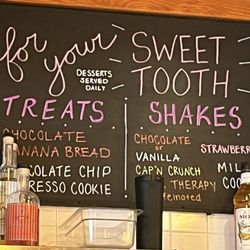 for your
SWEET
TOOTH
DESSERTS
SERVED
DAILY
TREATS
CHOCOLATE
BANANA BREAD
CHOCOLATE CHIP
ESPRESSO COOKIE
SHAKES
CHOCOLATE
or
VANILLA
CAP'N CRUNCH
THERAPY
STRAWBERRY